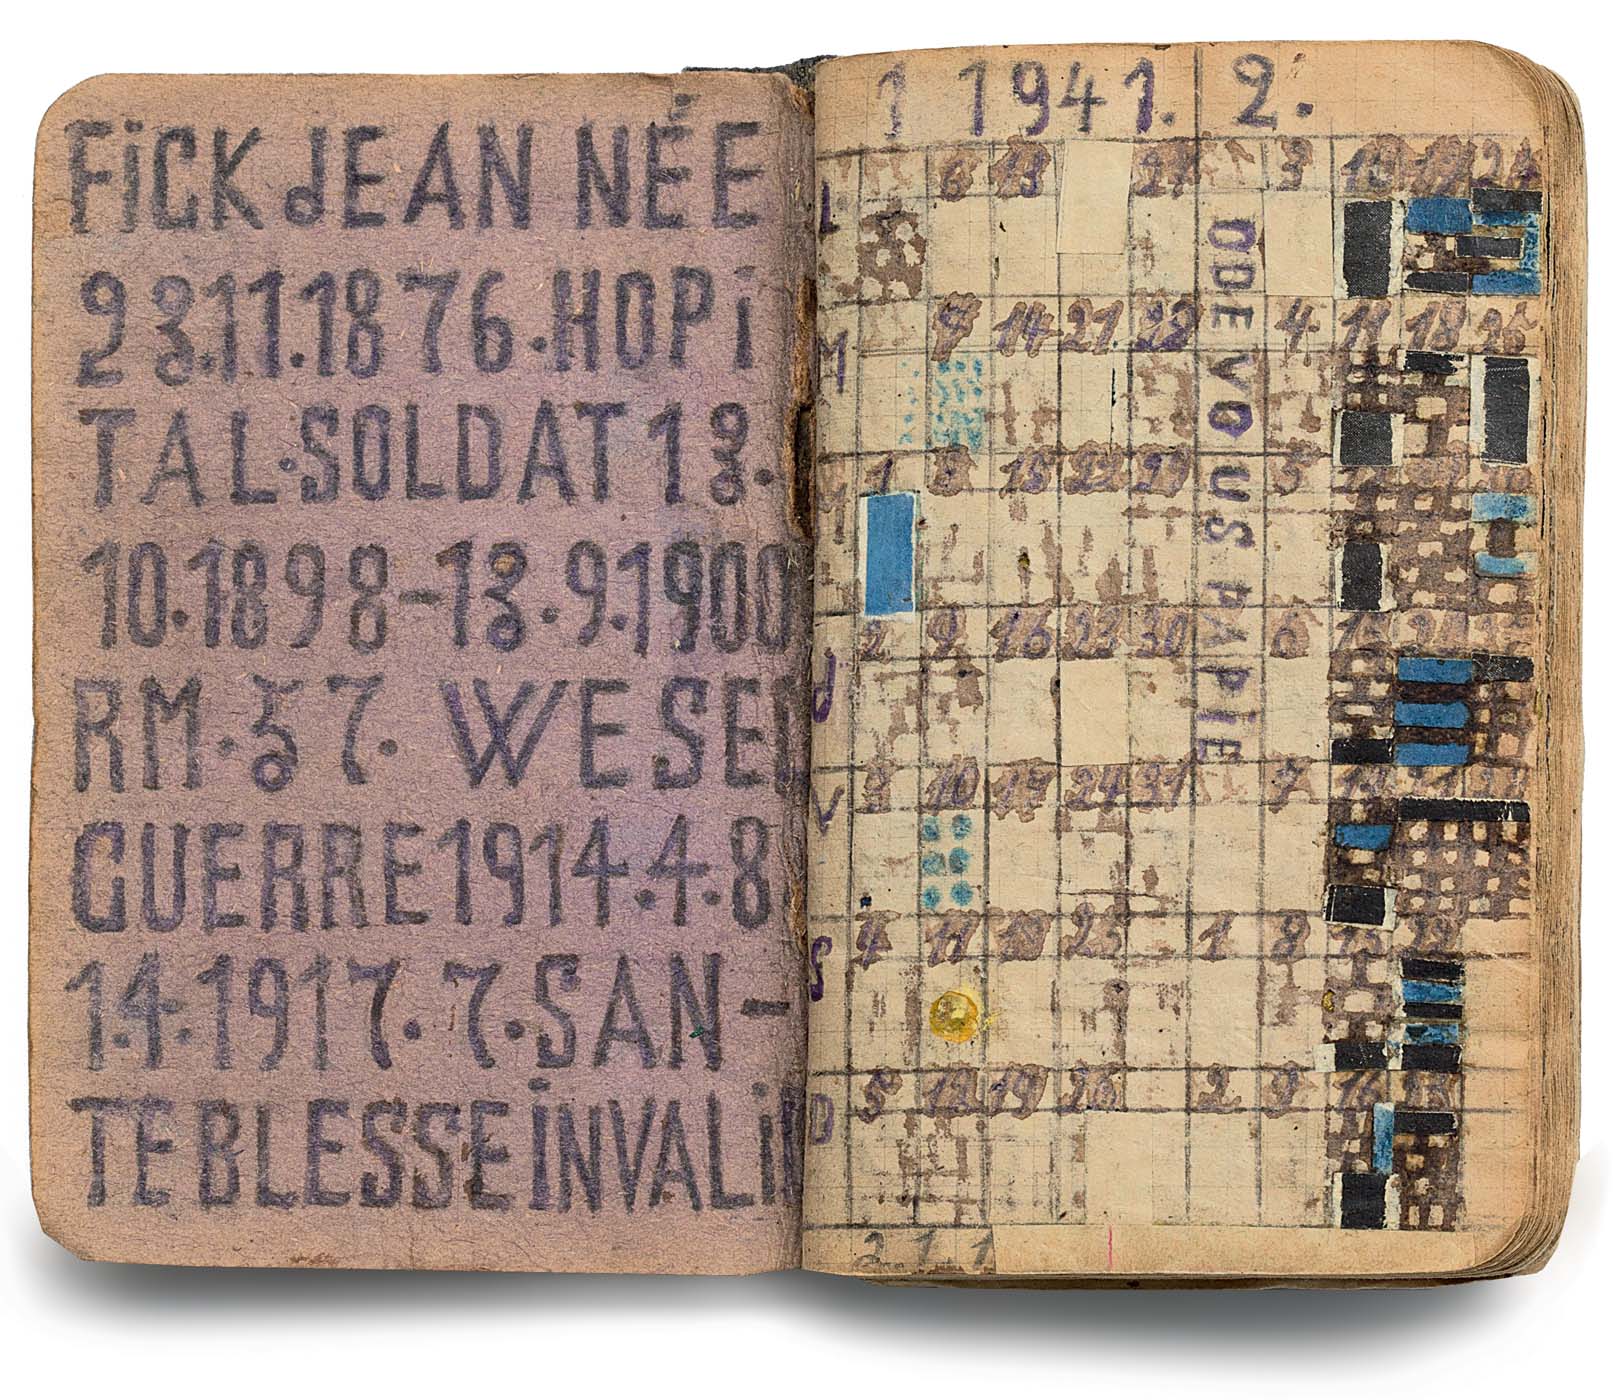 FiCK JEAN NÉE
23.11.1876.HOPi
TAL.SOLDAT 13.
10.1898-13.9.1900
RM.37. WESE
GUERRE 1914.4.8
14.1917.7.SAN-
TE BLESSE iNVALi
1 1941. 2.
L 6 13 27 3 10 17 24
M 7 14 21 28 4 11 18 25
M 1 8 15 22 29 5
J 2 9 16 23 30 6
V 3 10 17 24 31 7 14
S 4 11 18 25 1 8 15 22
D 5 12 19 26 2 9 16 23
ODE VOUS PAPIE
2.1.1